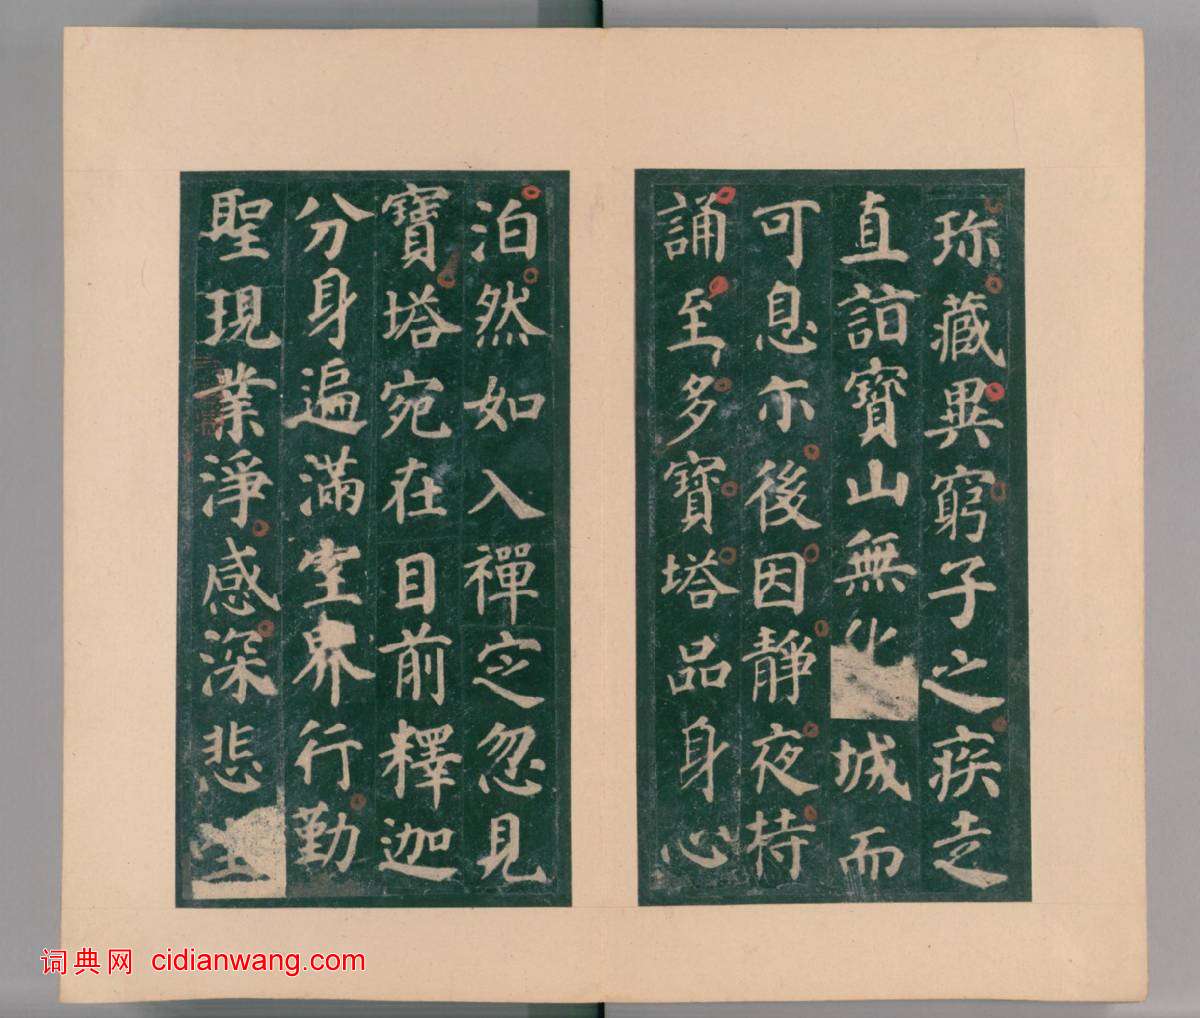 珎藏異窮子之疾走
直詣寶山無化城而
可息尒後因靜夜持
誦至多寶塔品身心
泊然如入禪定忽見
寶塔宛在目前釋迦
分身遍滿空界行勤
聖現業淨感深悲生
词典网 cidianwang.com